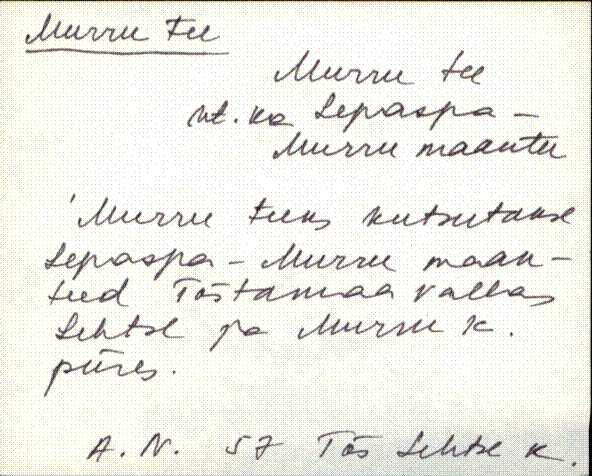 Murru tee
Murru tee
vt. ka Sepaspa-
Murru maantee
'Murru teeks kutsutakse
Sepaspa-Murru maan-
teed Tõstamaa vallas
Sehtse ja Murru k.
piires.
A. N. 57 Tõs Sehtse k.